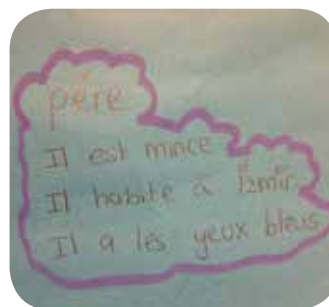 père
Il est mince
Il habite à İzmir.
Il a les yeux bleus